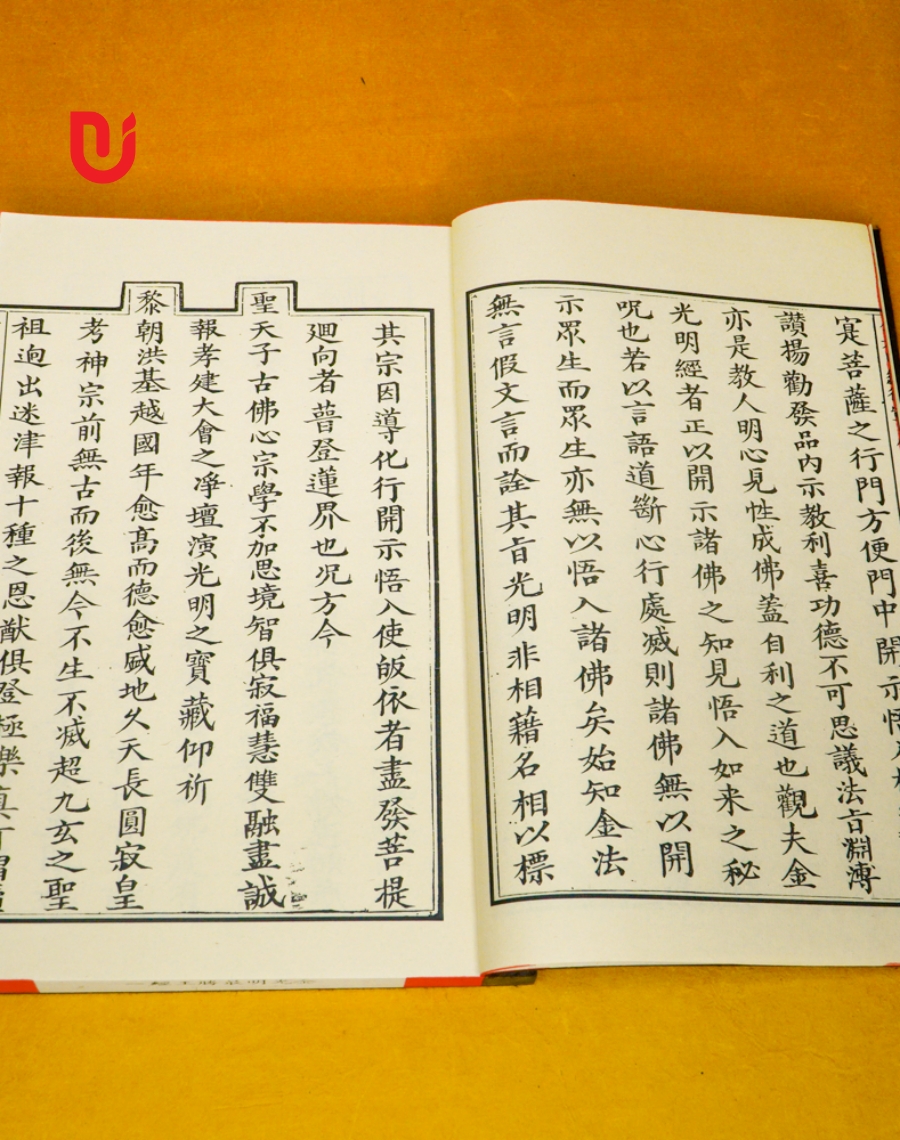 寔菩薩之行門方便門中開示悟入
讚揚勸發品內示教利喜功德不可思議法旨淵溥
亦是教人明心見性成佛蓋自利之道也觀夫金
光明經者正以開示諸佛之知見悟入如来之秘
呪也若以言語道斷心行處滅則諸佛無以開
示眾生而眾生亦無以悟入諸佛矣始知金法
無言假文言而詮其旨光明非相藉名相以標
其宗因導化行開示悟入使皈依者盡發菩提
廻向者普登蓮界也况方今
聖天子古佛心宗學不加思境智俱寂福慧雙融盡誠
報孝建大會之凈壇演光明之寶藏仰祈
黎朝洪基越國年愈髙而德愈盛地久天長圓寂皇
考神宗前無古而後無今不生不滅超九玄之聖
祖逈出迷津報十種之恩猷俱登極樂真可謂